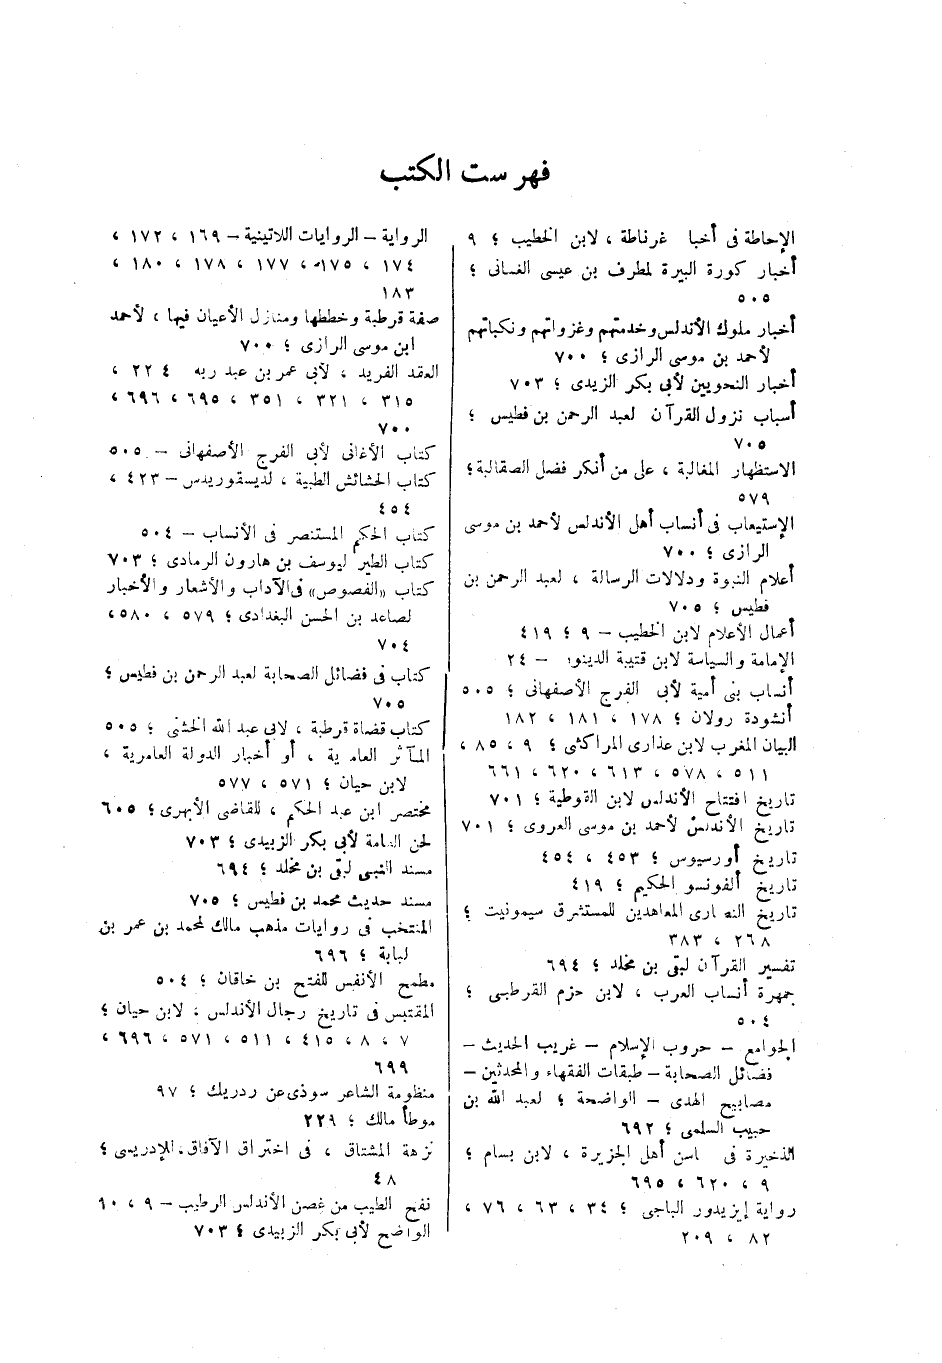 فهرست الكتب
الإحاطة فى أخبا غرناطة ، لابن الخطيب ؛ ٩
أخبار كورة البيرة لمطرف بن عيسى الغسانى ؛
٥٠٥
أخبار ملوك الأندلس وخدمتهم وغزواتهم ونكباتهم
لأحمد بن موسى الرازى ؛ ٧٠٠
أخبار النحويين لأبى بكر الزبدى ؛ ٧٠٣
أسباب نزول القرآن لعبد الرحمن بن فطيس ؛
٧٠٥
الاستظهار المغالبة ، على من أنكر فضل الصقالبة ؛
٥٧٩
الإستيعاب فى أنساب أهل الأندلس لأحمد بن موسى
الرازى ؛ ٧٠٠
أعلام النبوة ودلالات الرسالة ، لعبد الرحمن بن
فطيس ؛ ٧٠٥
أعمال الأعلام لابن الخطيب – ٩ ؛ ٤١٩
الإمامة والسياسة لابن قتيبة الدينو – ٢٤
أنساب بنى أمية لأبى الفرج الأصفهانى ؛ ٥٠٥
أنشودة رولان ؛ ١٧٨ ، ١٨١ ، ١٨٢
البيان المغرب لابن عذارى المراكشى ؛ ٩ ، ٨٥ ،
٥١١ ، ٥٧٨ ، ٦١٣ ، ٦٢٠ ، ٦٦١
تاريخ افتتاح الأندلس لابن القوطية ؛ ٧٠١
تاريخ الأندلس لأحمد بن موسى العروى ؛ ٧٠١
تاريخ أورسيوس ؛ ٤٥٣ ، ٤٥٤
تاريخ ألفونسو الحكيم ؛ ٤١٩
تاريخ النصارى المعاهدين للمستشرق سيمونيت ؛
٢٦٨ ، ٣٨٣
تفسير القرآن لبقى بن مخلد ؛ ٦٩٤
جمهرة أنساب العرب ، لابن حزم القرطبى ؛
٥٠٤
الجوامع – حروب الإسلام – غريب الحديث –
فضائل الصحابة – طبقات الفقهاء والمحدثين –
مصابيح الهدى – الواضحة ؛ لعبد الله بن
حبيب السلمى ؛ ٦٩٢
الذخيرة فى اسن أهل الجزيرة ، لابن بسام ؛
٩ ، ٦٢٠ ، ٦٩٥
رواية إيزيدور الباجى ؛ ٣٤ ، ٦٣ ، ٧٦ ،
٨٢ ، ٢٠٩
الرواية – الروايات اللاتينية – ١٦٩ ، ١٧٢ ،
١٧٤ ، ١٧٥ ، ١٧٧ ، ١٧٨ ، ١٨٠ ،
١٨٣
صفة قرطبة وخططها ومنازل الأعيان فيها ، لأحمد
ابن موسى الرازى ؛ ٧٠٠
العقد الفريد ، لأبى عمر بن عبد ربه ٢٢٤ ،
٣١٥ ، ٣٢١ ، ٣٥١ ، ٦٩٥ ، ٦٩٦ ،
٧٠٠
كتاب الأغانى لأبى الفرج الأصفهانى – ٥٠٥
كتاب الحشائش الطبية ، لديسقوريدس – ٤٢٣ ،
٤٥٤
كتاب الحكم المستنصر فى الأنساب – ٥٠٤
كتاب الطير ليوسف بن هارون الرمادى ؛ ٧٠٣
كتاب «الفصوص» فى الآداب والأشعار والأخبار
لصاعد بن الحسن البغدادى ؛ ٥٧٩ ، ٥٨٠ ،
٧٠٤
كتاب فى فضائل الصحابة لعبد الرحمن بن فطيس ؛
٧٠٥
كتاب قضاة قرطبة ، لابى عبد الله الخشنى ؛ ٥٠٥
المآثر العامرية ، أو أخبار الدولة العامرية ،
لابن حيان ؛ ٥٧١ ، ٥٧٧
مختصر ابن عبد الحكم ، للقاضى الأبهرى ؛ ٦٠٥
لحن العامة لأبى بكر الزبيدى ؛ ٧٠٣
مسند النبى لبقى بن مخلد ؛ ٦٩٤
مسند حديث محمد بن فطيس ؛ ٧٠٥
المنتخب فى روايات مذهب مالك لمحمد بن عمر بن
لبابة ؛ ٦٩٦
مطمح الأنفس للفتح بن خاقان ؛ ٥٠٤
المقتبس فى تاريخ رجال الأندلس ، لابن حيان ؛
٧ ، ٨ ، ٤١٥ ، ٥١١ ، ٥٧١ ، ٦٩٦ ،
٦٩٩
منظومة الشاعر سوذى عن ردريك ؛ ٩٧
موطأ مالك ؛ ٢٢٩
نزهة المشتاق ، فى اختراق الآفاق ، للإدريسى ؛
٤٨
نفح الطيب من غصن الأندلس الرطيب – ٩ ، ١٠
الواضح لأبى بكر الزبيدى ؛ ٧٠٣